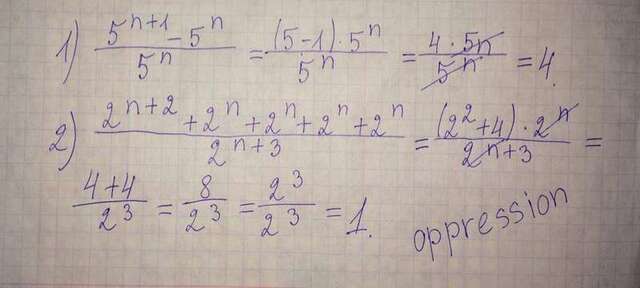 1) (5^(n+1) - 5^n)/5^n = ((5-1)·5^n)/5^n = (4·5n)/5^n = 4.
2) (2^(n+2) + 2^n + 2^n + 2^n + 2^n)/2^(n+3) = ((2^2+4)·2^n)/2^(n+3) =
(4+4)/2^3 = 8/2^3 = 2^3/2^3 = 1.
oppression